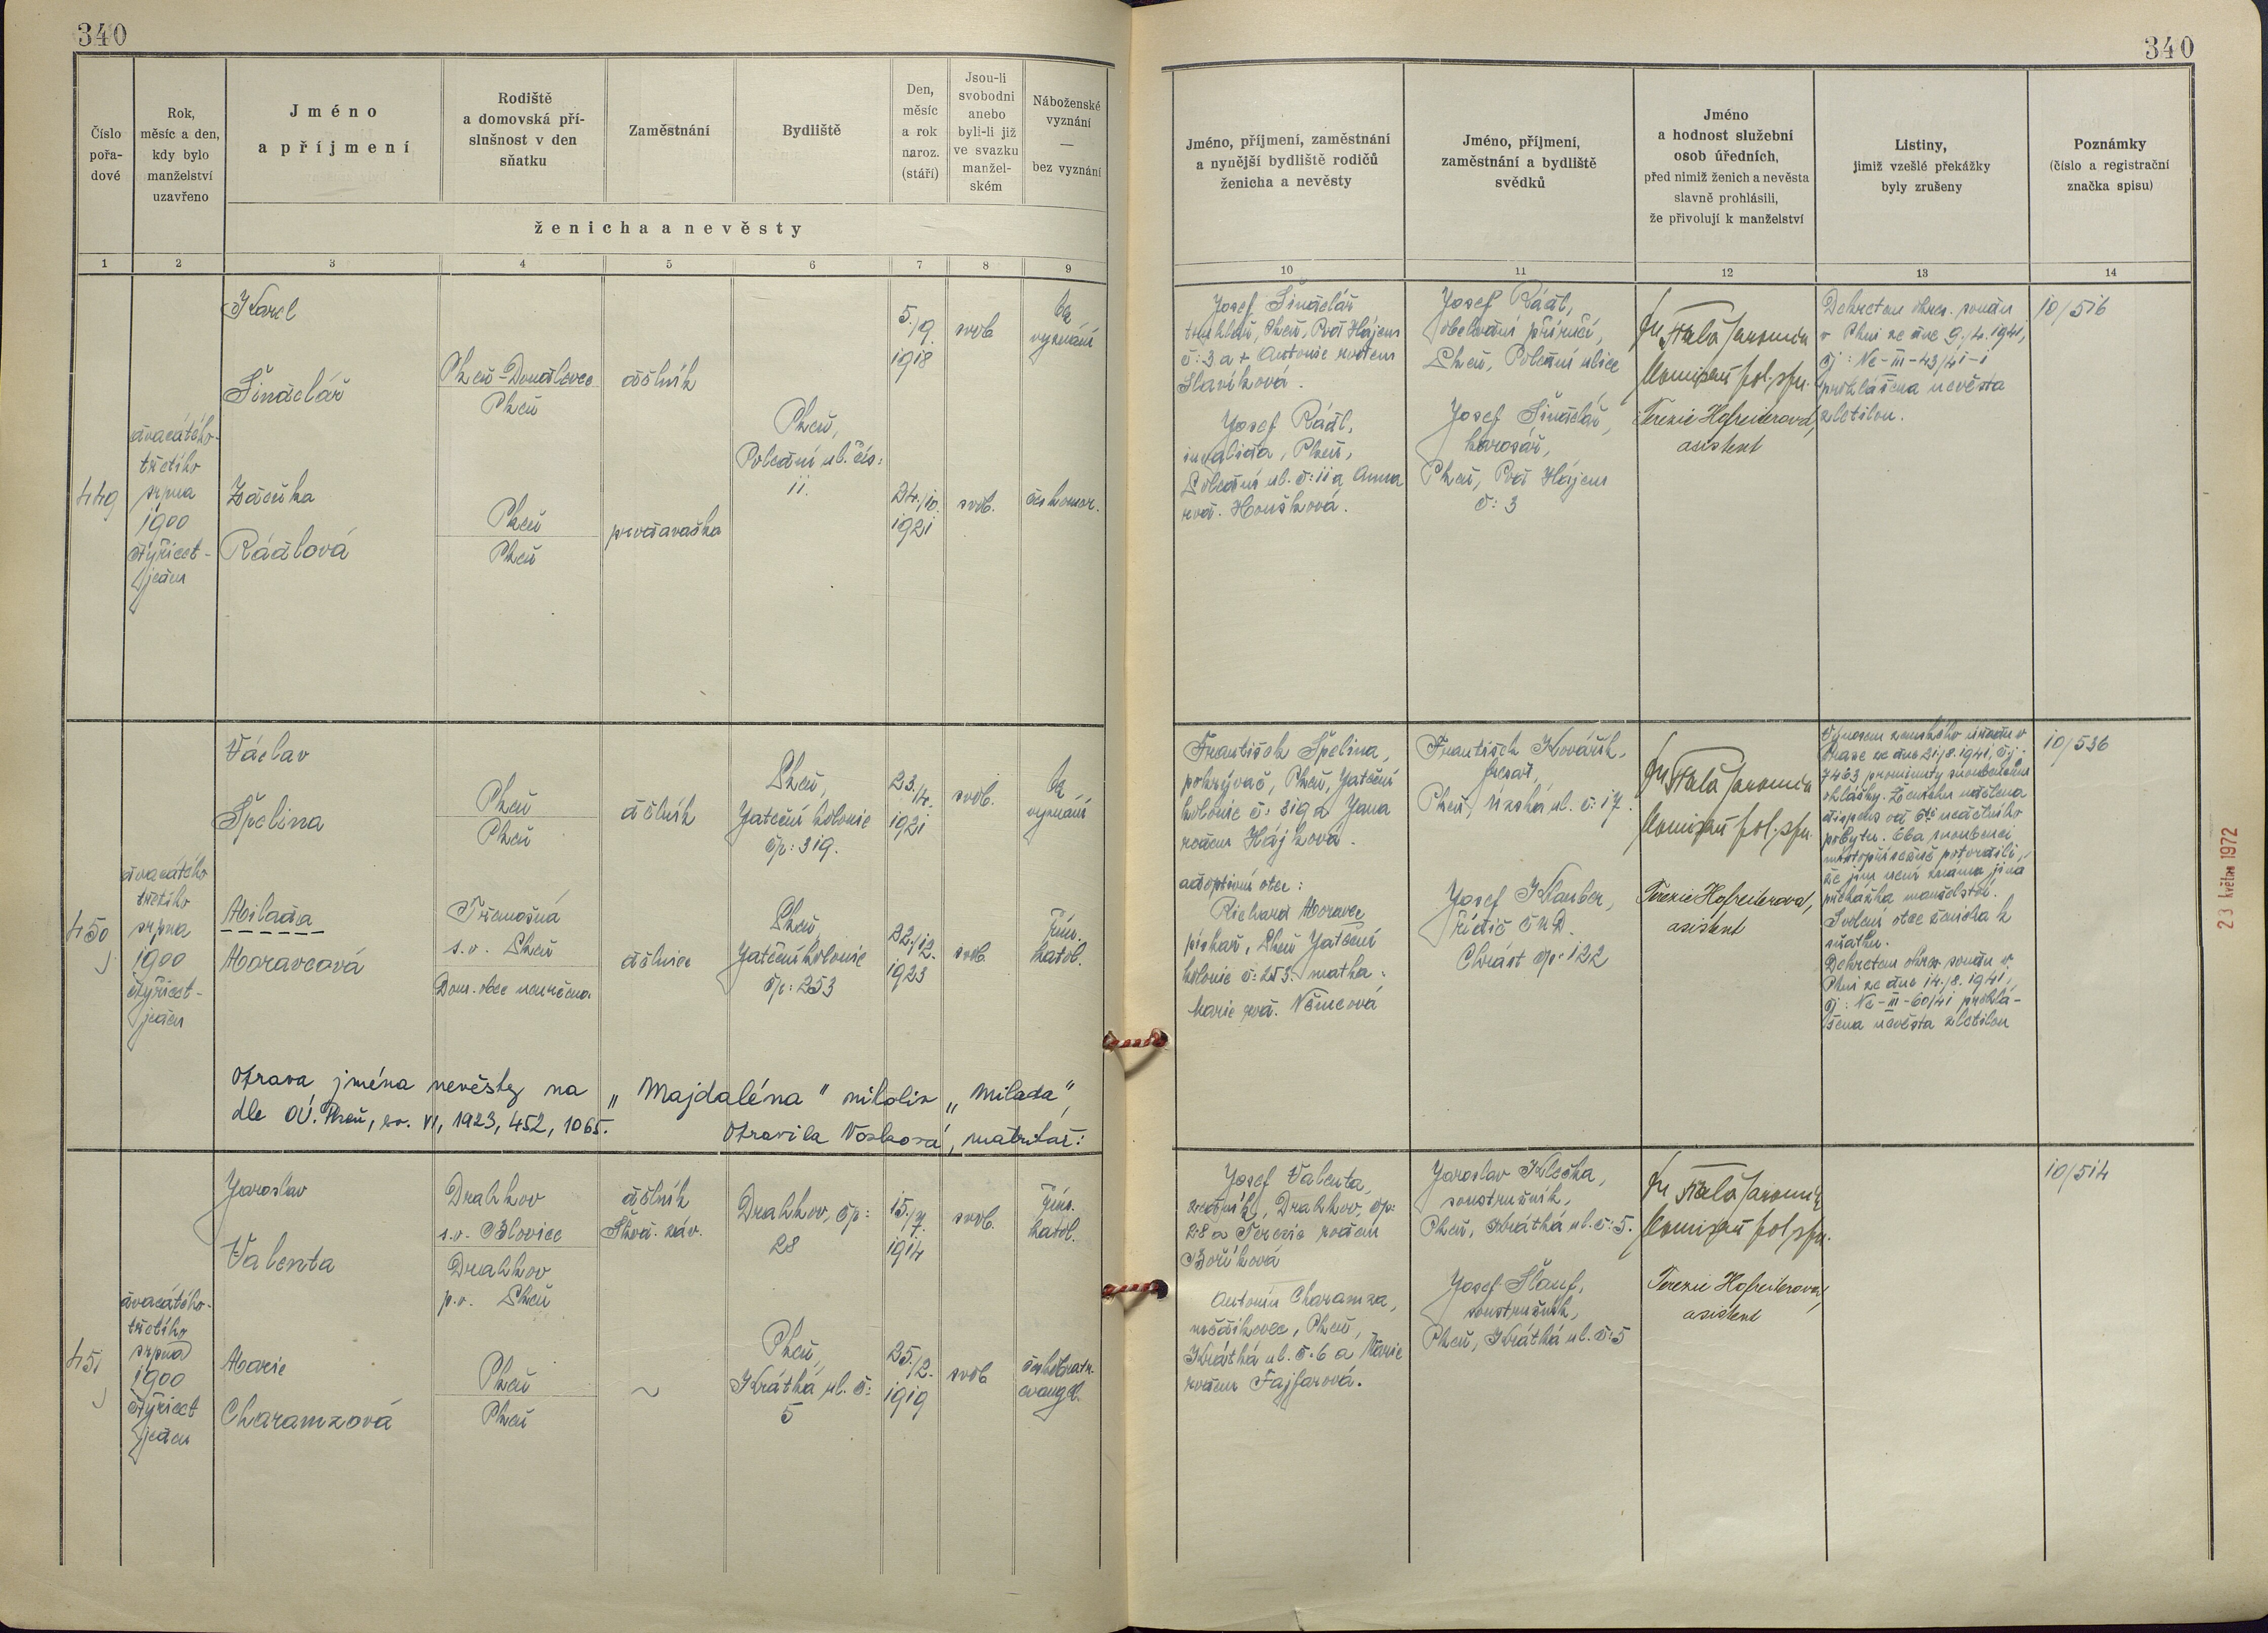 340
340
Číslo
pořa-
dové
Rok,
měsíc a den,
kdy bylo
manželství
uzavřeno
Jméno
a příjmení
Rodiště
a domovská pří-
slušnost v den
sňatku
Zaměstnání
Bydliště
Den,
měsíc
a rok
naroz.
(stáří)
Jsou-li
svobodni
anebo
byli-li již
ve svazku
manžel-
ském
Náboženské
vyznání
—
bez vyznání
ženicha a nevěsty
Jméno, příjmení, zaměstnání
a nynější bydliště rodičů
ženicha a nevěsty
Jméno, příjmení,
zaměstnání a bydliště
svědků
Jméno
a hodnost služební
osob úředních,
před nimiž ženich a nevěsta
slavně prohlásili,
že přivolují k manželství
Listiny,
jimiž vzešlé překážky
byly zrušeny
Poznámky
(číslo a registrační
značka spisu)
1 2 3 4 5 6 7 8 9 10 11 12 13 14
449
dvacátého-
třetího
srpna
1900
čtyřicet-
jeden
Karel
Šindelář
Plzeň-Doudlevce
Plzeň
dělník
Plzeň,
Polední ul. čís:
11.
5./9.
1918
svob
bez
vyznání
Zdeňka
Rádlová
Plzeň
Plzeň
prodavačka
24./10.
1921
svob.
českomor.
Josef Šindelář
truhlář, Plzeň, Pod Hájem
č: 3 a + Antonie rodem
Slavíková.
Josef Rádl,
invalida, Plzeň,
Polední ul. č: 11 a Anna
rod. Houšková.
Josef Rádl,
obchodní příručí,
Plzeň, Polední ulice
Josef Šindelář,
karosář,
Plzeň, Pod Hájem
č: 3
Jaromír
komisař pol. spr.
Terezie Hofreiterová,
asistent
Dekretem okres. soudu
v Plzni ze dne 9./4. 1941,
čj: Nc-III-43/41-1
prohlášena nevěsta
zletilou.
10/516
450
dvacátého
třetího
srpna
1900
čtyřicet-
jeden
Václav
Špelina
Plzeň
Plzeň
dělník
Plzeň,
Jateční kolonie
čp: 319.
23./4.
1921
svob.
bez
vyznání
Milada
Moravcová
Třemošná
s.o. Plzeň
Dom. obec neurčena
dělnice
Plzeň,
Jateční kolonie
čp: 253
22./12.
1923
svob
řím.
katol.
František Špelina,
pokrývač, Plzeň, Jateční
kolonie č: 319 a Jana
rodem Hájková.
adoptivní otec:
Richard Moravec
pískař, Plzeň Jateční
kolonie č: 253. matka:
Marie rod. Němcová
František Kovářík,
frezař,
Plzeň, Úzská ul. č: 17.
Josef Klauber,
řídič ČMD.
Chrást čp. 122
Jaromír
komisař pol. spr.
Terezie Hofreiterová,
asistent
Výnosem zemského úřadu v
Praze ze dne 21/8. 1941, čj:
7463 prominuty snoubencům
ohlášky. Ženichu udělena
dispens od 6ti nedělního
pobytu. Oba snoubenci
místopřísežně potvrdili,
že jim není známa jiná
překážka manželství.
Svolení otce ženicha k
sňatku.
Dekretem okres. soudu v
Plzni ze dne 14./8. 1941,
čj: Nc-III-60/41 prohlá-
šena nevěsta zletilou
10/536
Oprava jména nevěsty na „Majdaléna" nikoliv „Milada",
dle OÚ. Plzeň, sv. VI, 1923, 452, 1065.
Opravila Vosková, matrikář:
23. květen 1972
451
dvacátého-
třetího
srpna
1900
čtyřicet
jeden
Jaroslav
Valenta
Drahkov
s.o. Blovice
Drahkov
p.o. Plzeň
dělník
Škod. záv.
Drahkov, čp:
28
15./7.
1914
svob.
řím.
katol.
Marie
Charamzová
Plzeň
Plzeň
~
Plzeň,
Krátká ul. č:
5
25./2.
1919
svob
českobratr.
evangel.
Josef Valenta,
zedník, Drahkov, čp:
28 a Terezie rodem
Boříková
Antonín Charamza,
Plzeň,
Krátká ul. č. 6 a Marie
rodem Fajfarová.
Jaroslav Klečka,
soustružník,
Plzeň, Krátká ul. č: 5.
Josef Šlauf,
soustružník,
Plzeň, Krátká ul. č: 5
Jaromír
komisař pol. spr.
Terezie Hofreiterová,
asistent
10/514